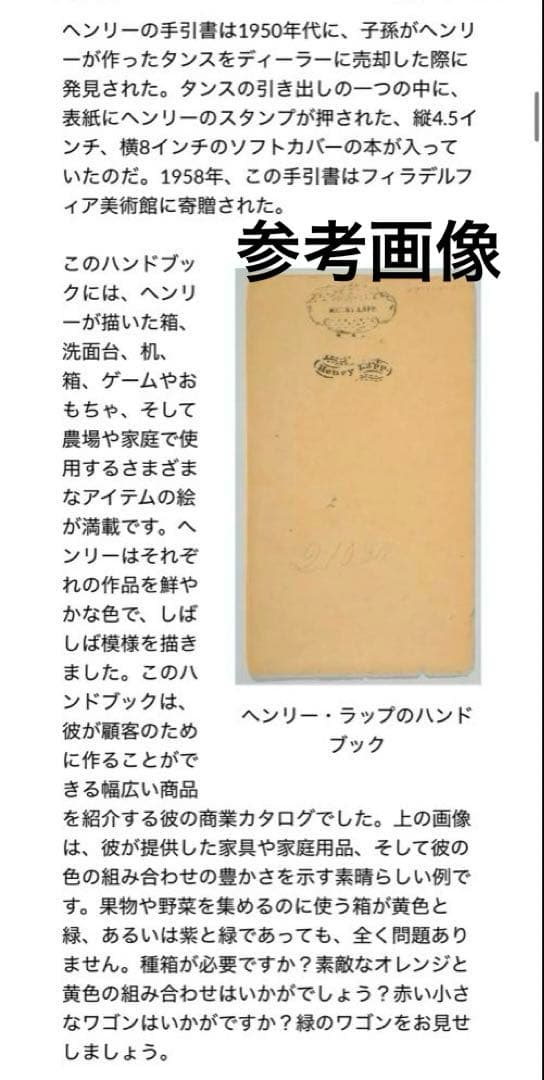 ヘンリーの手引書は1950年代に、子孫がヘンリ
ーが作ったタンスをディーラーに売却した際に
発見された。タンスの引き出しの一つの中に、
表紙にヘンリーのスタンプが押された、縦4.5イ
ンチ、横8インチのソフトカバーの本が入って
いたのだ。1958年、この手引書はフィラデルフ
ィア美術館に寄贈された。
参考画像
このハンドブッ
クには、ヘンリ
ーが描いた箱、
洗面台、机、
箱、ゲームやお
もちゃ、そして
農場や家庭で使
用するさまざま
なアイテムの絵
が満載です。ヘ
ンリーはそれぞ
れの作品を鮮や
かな色で、しば
しば模様を描き
ました。このハ
ンドブックは、
彼が顧客のため
に作ることがで
きる幅広い商品
を紹介する彼の商業カタログでした。上の画像
は、彼が提供した家具や家庭用品、そして彼の
色の組み合わせの豊かさを示す素晴らしい例で
す。果物や野菜を集めるのに使う箱が黄色と
緑、あるいは紫と緑であっても、全く問題あり
ません。種箱が必要ですか？素敵なオレンジと
黄色の組み合わせはいかがでしょう？赤い小さ
なワゴンはいかがですか？緑のワゴンをお見せ
しましょう。
Henry Lapp
ヘンリー・ラップのハンド
ブック